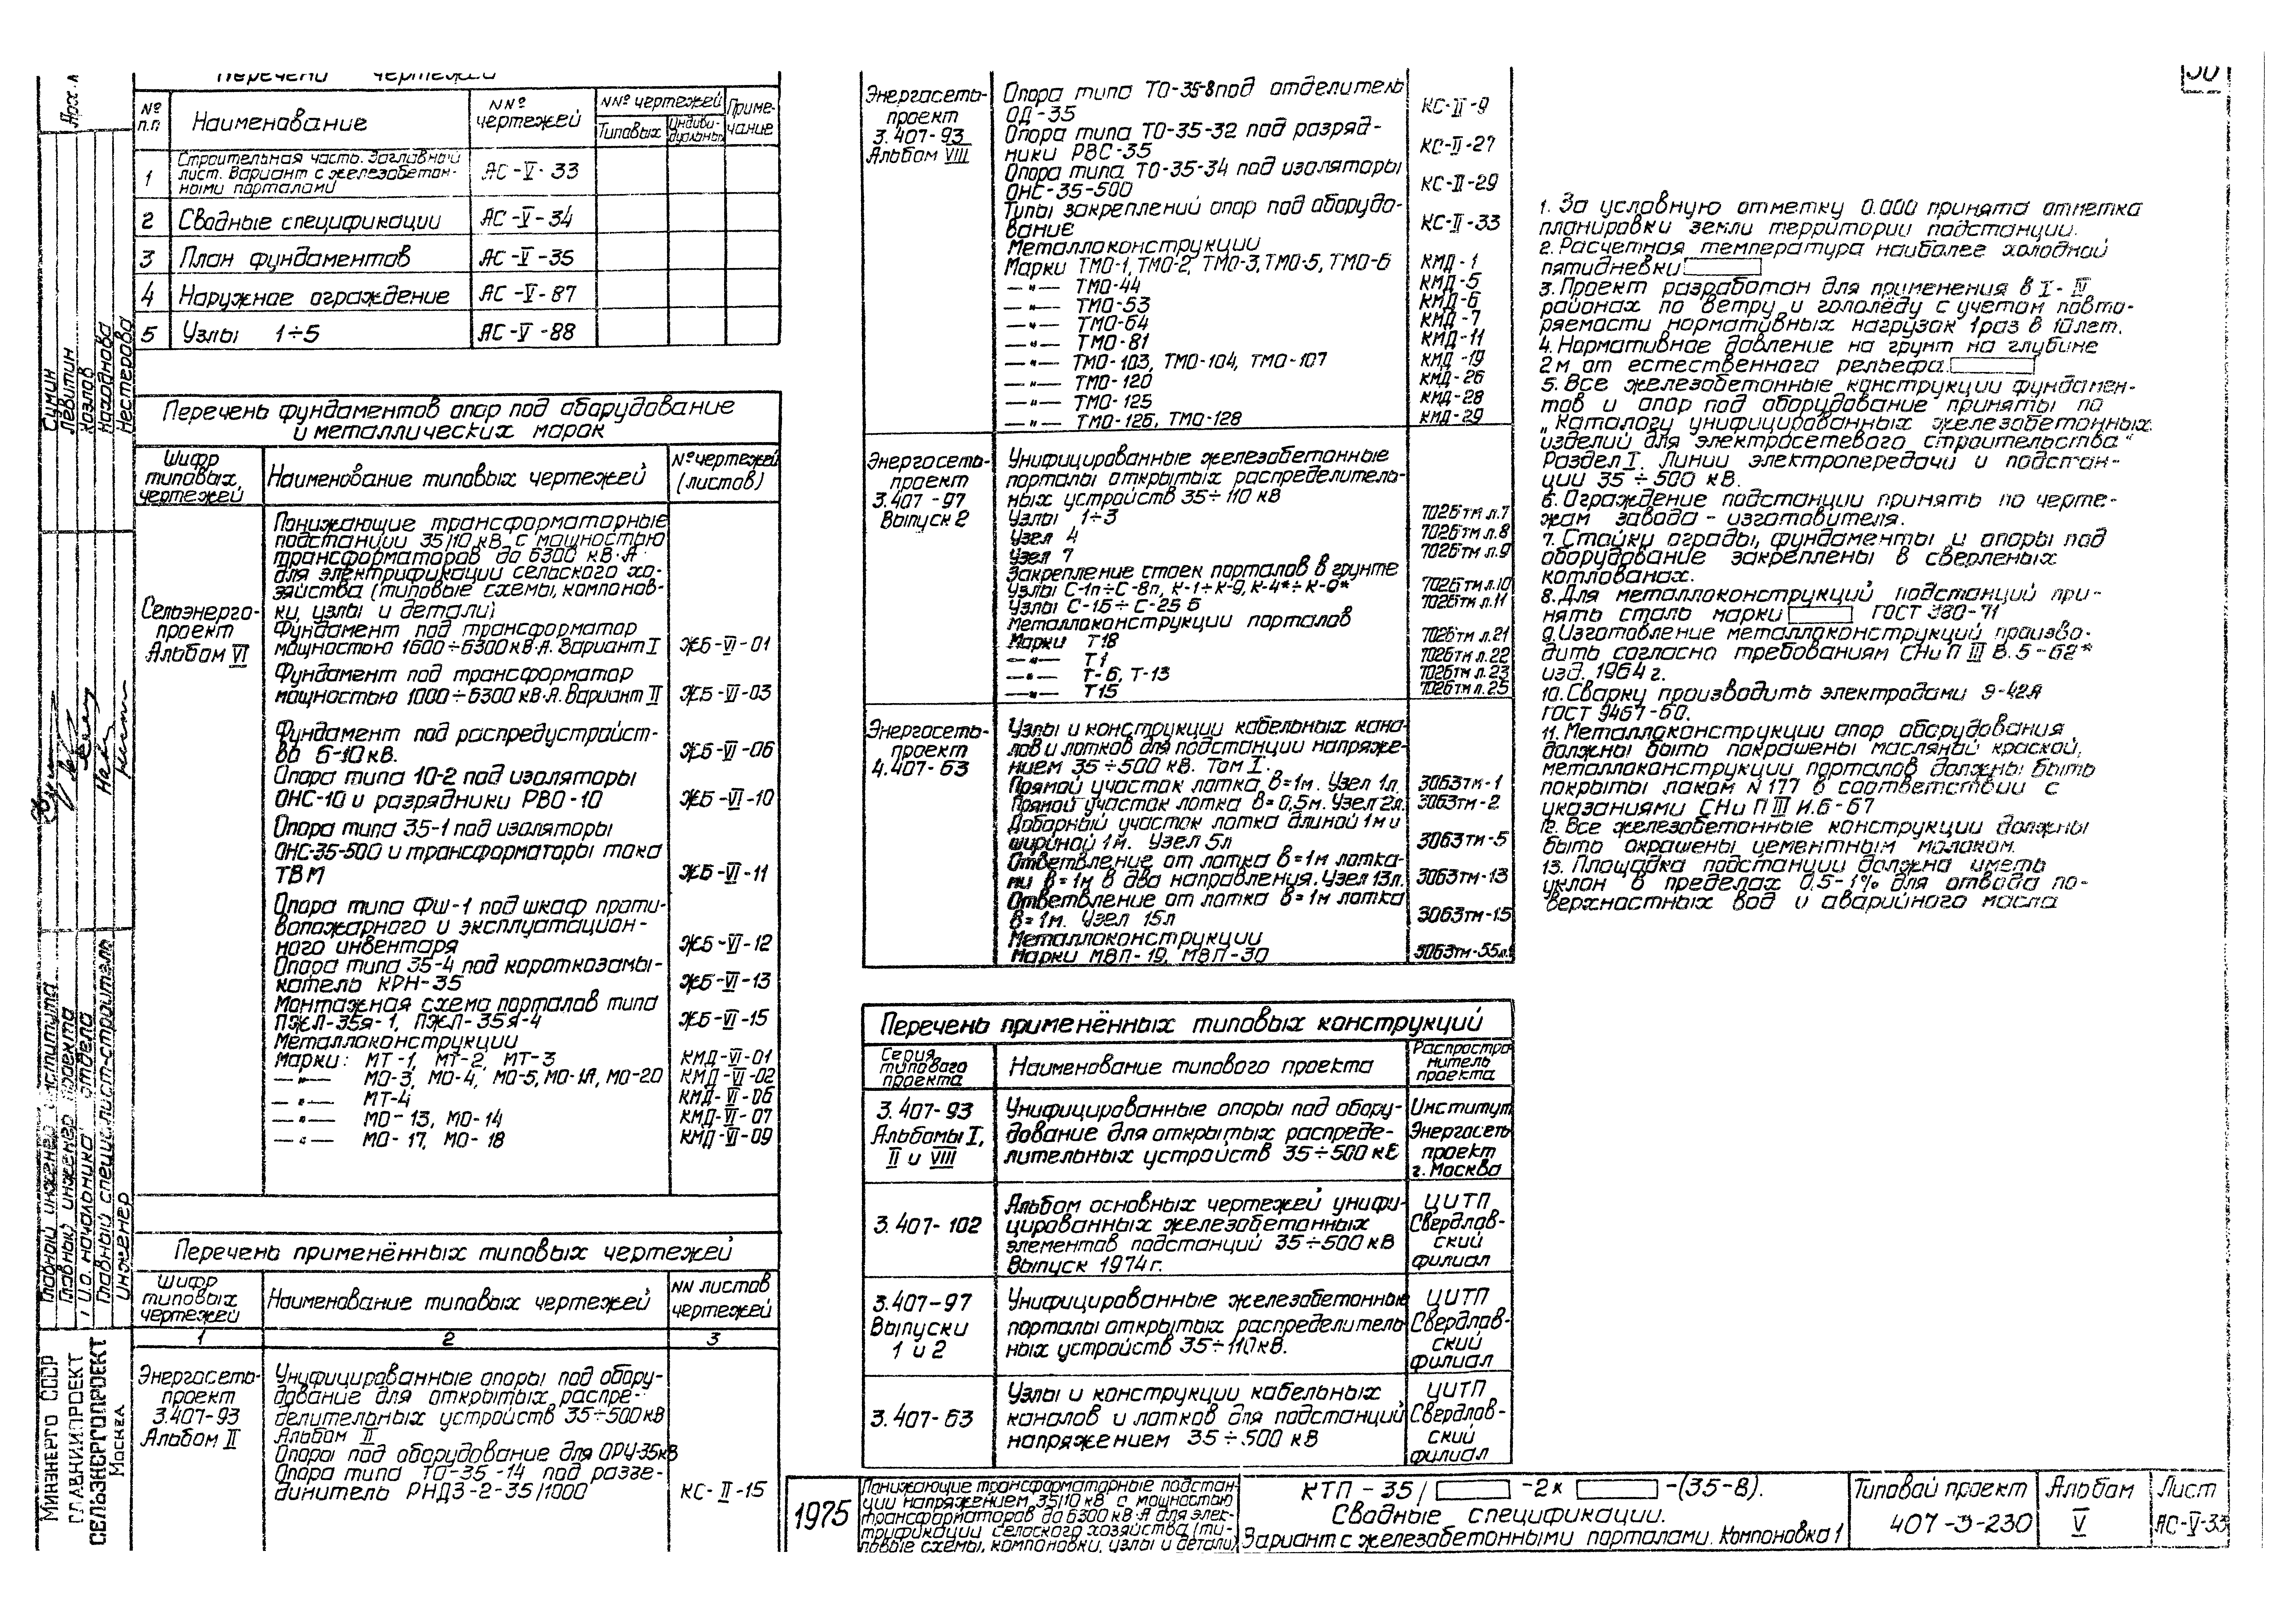 Перечень чертежей
№ п.п.
Наименование
NNº чертежей
NNº чертежей
Типовых
Индиви-
дуальных
Приме-
чание
1
Строительная часть. Заглавный
лист. Вариант с железобетон-
ными порталами
АС-V-33
2 Сводные спецификации АС-V-34
3 План фундаментов АС-V-35
4 Наружное ограждение АС-V-87
5 Узлы 1÷5 АС-V-88
Перечень фундаментов опор под оборудование
и металлических марок
Шифр
типовых
чертежей
Наименование типовых чертежей
Nº чертежей
(листов)
Сельэнерго-
проект
Альбом VI
Понижающие трансформаторные
подстанции 35/10 кВ с мощностью
трансформаторов до 6300 кВ·А
для электрификации сельского хо-
зяйства (типовые схемы, компонов-
ки, узлы и детали)
Фундамент под трансформатор
мощностью 1600÷6300кВ·А. Вариант I ЖБ-VI-01
Фундамент под трансформатор
мощностью 1000÷6300кВ·А. Вариант II ЖБ-VI-03
Фундамент под распредустройст-
во 6-10кВ. ЖБ-VI-06
Опора типа 10-2 под изоляторы
ОНС-10 и разрядники РВО-10 ЖБ-VI-10
Опора типа 35-1 под изоляторы
ОНС-35-500 и трансформаторы тока
ТВМ ЖБ-VI-11
Опора типа ФШ-1 под шкаф проти-
вопожарного и эксплуатацион-
ного инвентаря ЖБ-VI-12
Опора типа 35-4 под короткозамы-
катель КРН-35 ЖБ-VI-13
Монтажная схема порталов типа
ПЖЛ-35я-1, ПЖЛ-35я-4 ЖБ-VI-15
Металлоконструкции
Марки: МТ-1, МТ-2, МТ-3 КМД-VI-01
—"— МО-3, МО-4, МО-5, МО-1А, МО-20 КМД-VI-02
—"— МТ-4 КМД-VI-06
—"— МО-13, МО-14 КМД-VI-07
—"— МО-17, МО-18 КМД-VI-09
Перечень применённых типовых чертежей
Шифр
типовых
чертежей
Наименование типовых чертежей
NN листов
чертежей
1 2 3
Энергосеть-
проект
3.407-93
Альбом II
Унифицированные опоры под обору-
дование для открытых распре-
делительных устройств 35÷500кВ
Альбом II
Опоры под оборудование для ОРУ-35кВ
Опора типа ТО-35-14 под разъе-
динитель РНДЗ-2-35/1000 КС-II-15
Энергосеть-
проект
3.407-93
Альбом VIII
Опора типа ТО-35-8 под отделитель
ОД-35 КС-II-9
Опора типа ТО-35-32 под разряд-
ники РВС-35 КС-II-27
Опора типа ТО-35-34 под изоляторы
ОНС-35-500 КС-II-29
Типы закреплений опор под оборудо-
вание КС-II-33
Металлоконструкции
Марки ТМО-1, ТМО-2, ТМО-3, ТМО-5, ТМО-6 КМД-1
—"— ТМО-44 КМД-5
—"— ТМО-53 КМД-6
—"— ТМО-64 КМД-7
—"— ТМО-81 КМД-11
—"— ТМО-103, ТМО-104, ТМО-107 КМД-19
—"— ТМО-120 КМД-26
—"— ТМО-125 КМД-28
—"— ТМО-126, ТМО-128 КМД-29
Энергосеть-
проект
3.407-97
Выпуск 2
Унифицированные железобетонные
порталы открытых распределитель-
ных устройств 35÷110 кВ
Узлы 1÷3 7026тм л.7
Узел 4 7026тм л.8
Узел 7 7026тм л.9
Закрепление стоек порталов в грунте
Узлы С-1п÷С-8п, К-1÷К-9, К-4*÷К-9* 7026тм л.10
Узлы С-15÷С-25 Б 7026тм л.11
Металлоконструкции порталов
Марки Т18 7026тм л.21
—"— Т1 7026тм л.22
—"— Т-6, Т-13 7026тм л.23
—"— Т15 7026тм л.25
Энергосеть-
проект
4.407-63
Узлы и конструкции кабельных кана-
лов и лотков для подстанции напряже-
нием 35÷500 кВ. Том I.
Прямой участок лотка в=1м. Узел 1л. 3063тм-1
Прямой участок лотка в=0,5м. Узел 2л. 3063тм-2
Доборный участок лотка длиной 1м и
шириной 1м. Узел 5л 3063тм-5
Ответвление от лотка в=1м лотка-
ми в=1м в два направления. Узел 13л. 3063тм-13
Ответвление от лотка в=1м лотка
в=1м. Узел 15л 3063тм-15
Металлоконструкции
Марки МВП-19, МВП-30 3063тм-55л.
Перечень применённых типовых конструкций
Серия
типового
проекта
Наименование типового проекта
Распростра-
нитель
проекта
3.407-93
Альбомы I,
II и VIII
Унифицированные опоры под обору-
дование для открытых распреде-
лительных устройств 35÷500 кВ
Институт
Энергосеть
проект
г. Москва
3.407-102
Альбом основных чертежей унифи-
цированных железобетонных
элементов подстанций 35÷500 кВ
Выпуск 1974г.
ЦИТП
Свердлов-
ский
филиал
3.407-97
Выпуски
1 и 2
Унифицированные железобетонные
порталы открытых распределитель
ных устройств 35÷110кВ.
ЦИТП
Свердлов-
ский
филиал
3.407-63
Узлы и конструкции кабельных
каналов и лотков для подстанций
напряжением 35÷500 кВ
ЦИТП
Свердлов-
ский
филиал
1. За условную отметку 0.000 принята отметка
планировки земли территории подстанции.
2. Расчетная температура наиболее холодной
пятидневки
3. Проект разработан для применения в I-IV
районах по ветру и гололёду с учетом повто-
ряемости нормативных нагрузок 1раз в 10лет.
4. Нормативное давление на грунт на глубине
2м от естественного рельефа.
5. Все железобетонные конструкции фундамен-
тов и опор под оборудование приняты по
„Каталогу унифицированных железобетонных
изделий для электросетевого строительства"
Раздел I. Линии электропередачи и подстан-
ции 35÷500 кВ.
6. Ограждение подстанции принять по черте-
жам завода-изготовителя.
7. Стойки ограды, фундаменты и опоры под
оборудование закреплены в сверленых
котлованах.
8. Для металлоконструкций подстанций при-
нять сталь марки ГОСТ 380-71
9. Изготовление металлоконструкций произво-
дить согласно требованиям СНиП III В.5-62*
изд. 1964 г.
10. Сварку производить электродами Э-42А
ГОСТ 9467-60.
11. Металлоконструкции опор оборудования
должны быть покрашены масляной краской,
металлоконструкции порталов должны быть
покрыты лаком N 177 в соответствии с
указаниями СНиП III И.6-67
12. Все железобетонные конструкции должны
быть окрашены цементным молоком.
13. Площадка подстанции должна иметь
уклон в пределах 0,5-1% для отвода по-
верхностных вод и аварийного масла
Главный инженер института Симин
Главный инженер проекта Левитин
И.о. начальника отдела Козлов
Главный специалист-строитель Находнова
Инженер Нестерова
МИНЭНЕРГО СССР
ГЛАВНИИПРОЕКТ
СЕЛЬЭНЕРГОПРОЕКТ
Москва
1975
Понижающие трансформаторные подстан-
ции напряжением 35/10 кВ с мощностью
трансформаторов до 6300 кВ·А для элек-
трификации сельского хозяйства (ти-
повые схемы, компоновки, узлы и детали)
КТП-35/ -2х -(35-8).
Сводные спецификации.
Вариант с железобетонными порталами. Компоновка 1
Типовой проект
407-3-230
Альбом
V
Лист
АС-V-33